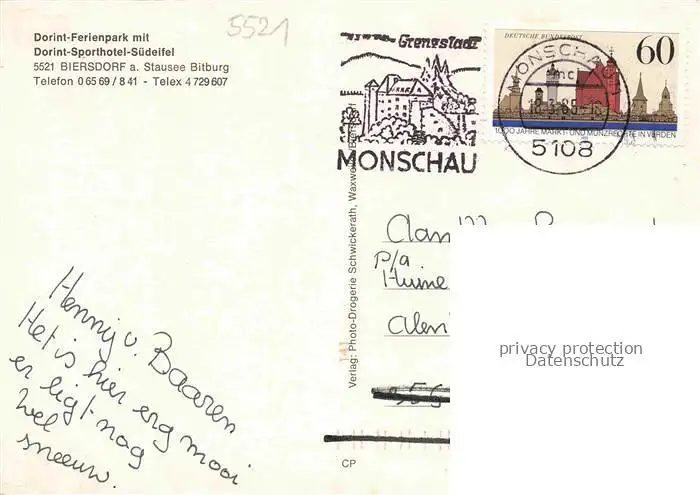 Dorint-Ferienpark mit
Dorint-Sporthotel-Südeifel
5521 BIERSDORF a. Stausee Bitburg
Telefon 0 65 69 / 8 41 - Telex 4 729 607
5521
Grenzstadt
MONSCHAU
DEUTSCHE BUNDESPOST
60
1000 JAHRE MARKT- UND MÜNZRECHTE IN VERDEN
MONSCHAU
mc
5108
Verlag: Photo-Drogerie Schwickerath, Waxweiler
p/a
Henny v. Baaren
Het is hier erg mooi
er ligt nog
wel
sneeuw.
141
CP
privacy protection
Datenschutz